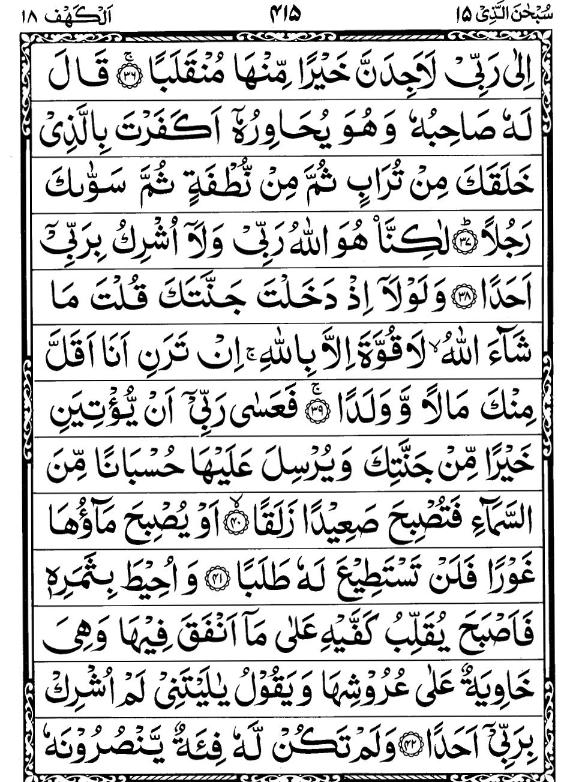 سُبْحٰنَ الَّذِیْۤ ١٥ ٤١٥ اَلْكَهْف ١٨
اِلٰی رَبِّیْ لَاَجِدَنَّ خَیْرًا مِّنْهَا مُنْقَلَبًا ۚ۝۳۶ قَالَ
لَهٗ صَاحِبُهٗ وَهُوَ یُحَاوِرُهٗۤ اَكَفَرْتَ بِالَّذِیْ
خَلَقَكَ مِنْ تُرَابٍ ثُمَّ مِنْ نُّطْفَةٍ ثُمَّ سَوّٰىكَ
رَجُلًا ؕ۝۳۷ لٰكِنَّا۠ هُوَ اللّٰهُ رَبِّیْ وَلَاۤ اُشْرِكُ بِرَبِّیْۤ
اَحَدًا ۝۳۸ وَلَوْلَاۤ اِذْ دَخَلْتَ جَنَّتَكَ قُلْتَ مَا
شَآءَ اللّٰهُ ۙ لَا قُوَّةَ اِلَّا بِاللّٰهِ ۚ اِنْ تَرَنِ اَنَا اَقَلَّ
مِنْكَ مَالًا وَّوَلَدًا ۚ۝۳۹ فَعَسٰی رَبِّیْۤ اَنْ یُّؤْتِیَنِ
خَیْرًا مِّنْ جَنَّتِكَ وَیُرْسِلَ عَلَیْهَا حُسْبَانًا مِّنَ
السَّمَآءِ فَتُصْبِحَ صَعِیْدًا زَلَقًا ۙ۝۴۰ اَوْ یُصْبِحَ مَآؤُهَا
غَوْرًا فَلَنْ تَسْتَطِیْعَ لَهٗ طَلَبًا ۝۴۱ وَاُحِیْطَ بِثَمَرِهٖ
فَاَصْبَحَ یُقَلِّبُ كَفَّیْهِ عَلٰی مَاۤ اَنْفَقَ فِیْهَا وَهِیَ
خَاوِیَةٌ عَلٰی عُرُوْشِهَا وَیَقُوْلُ یٰلَیْتَنِیْ لَمْ اُشْرِكْ
بِرَبِّیْۤ اَحَدًا ۝۴۲ وَلَمْ تَكُنْ لَّهٗ فِئَةٌ یَّنْصُرُوْنَهٗ